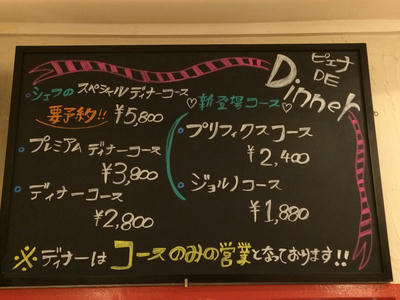 ピエナ
DE
Dinner
・シェフのスペシャルディナーコース
要予約!! ¥5,800
・プレミアムディナーコース
¥3,800
・ディナーコース
¥2,800
♡新登場コース♡
・プリフィクスコース
¥2,400
・ジョルノコース
¥1,880
※ディナーはコースのみの営業となっております!!